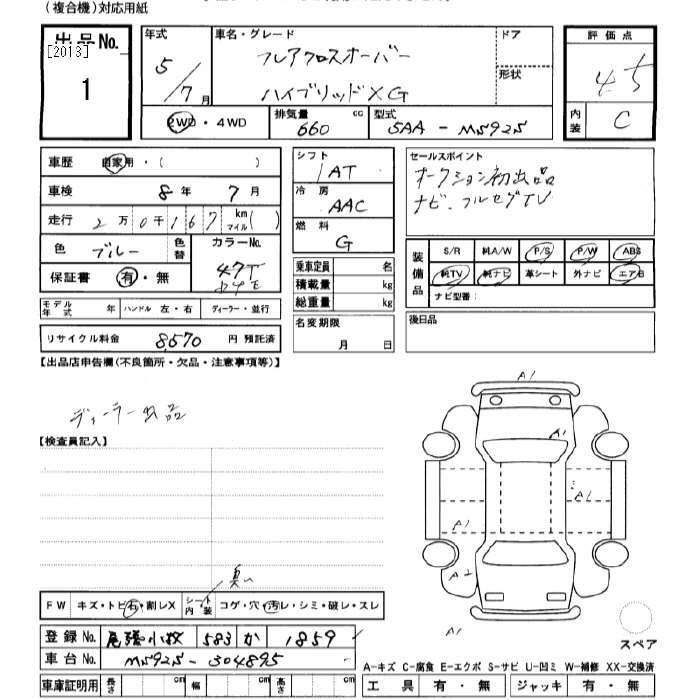 (複合機)対応用紙
出品No.
[2013]
1
年式
5/7月
車名・グレード
フレアクロスオーバー
ハイブリッドXG
ドア
形状
評価点
4.5
内装
C
2WD・4WD
排気量
660 cc
型式
5AA-MS92S
車歴 自家用・( )
車検 8年 7月
走行 2万0千167 km マイル( )
色 ブルー
色替
カラーNo.
47T
保証書 有・無
モデル年式 年 ハンドル 左・右 ディーラー・並行
リサイクル料金 8,570 円 預託済
シフト
AT
冷房
AAC
燃料
G
乗車定員 名
積載量 kg
総重量 kg
名変期限
月 日
セールスポイント
オークション初出品
ナビ、フルセグTV
装備品
S/R 純A/W P/S P/W ABS
純TV 純ナビ 革シート 外ナビ エアB
ナビ型番:
後日品
【出品店申告欄(不良箇所・欠品・注意事項等)】
ディーラー出品
【検査員記入】
A1
A1
A1
A1
A2
A1
スペア
FW キズ・トビ石・割レX シート・内装 コゲ・穴・汚レ・シミ・破レ・スレ
登録No. 尾張小牧 583 か 1859
車台No. MS92S-304895
車庫証明用 長さ cm 幅 cm 高さ cm
A-キズ C-腐食 E-エクボ S-サビ U-凹ミ W-補修 XX-交換済
工具 有・無 ジャッキ 有・無